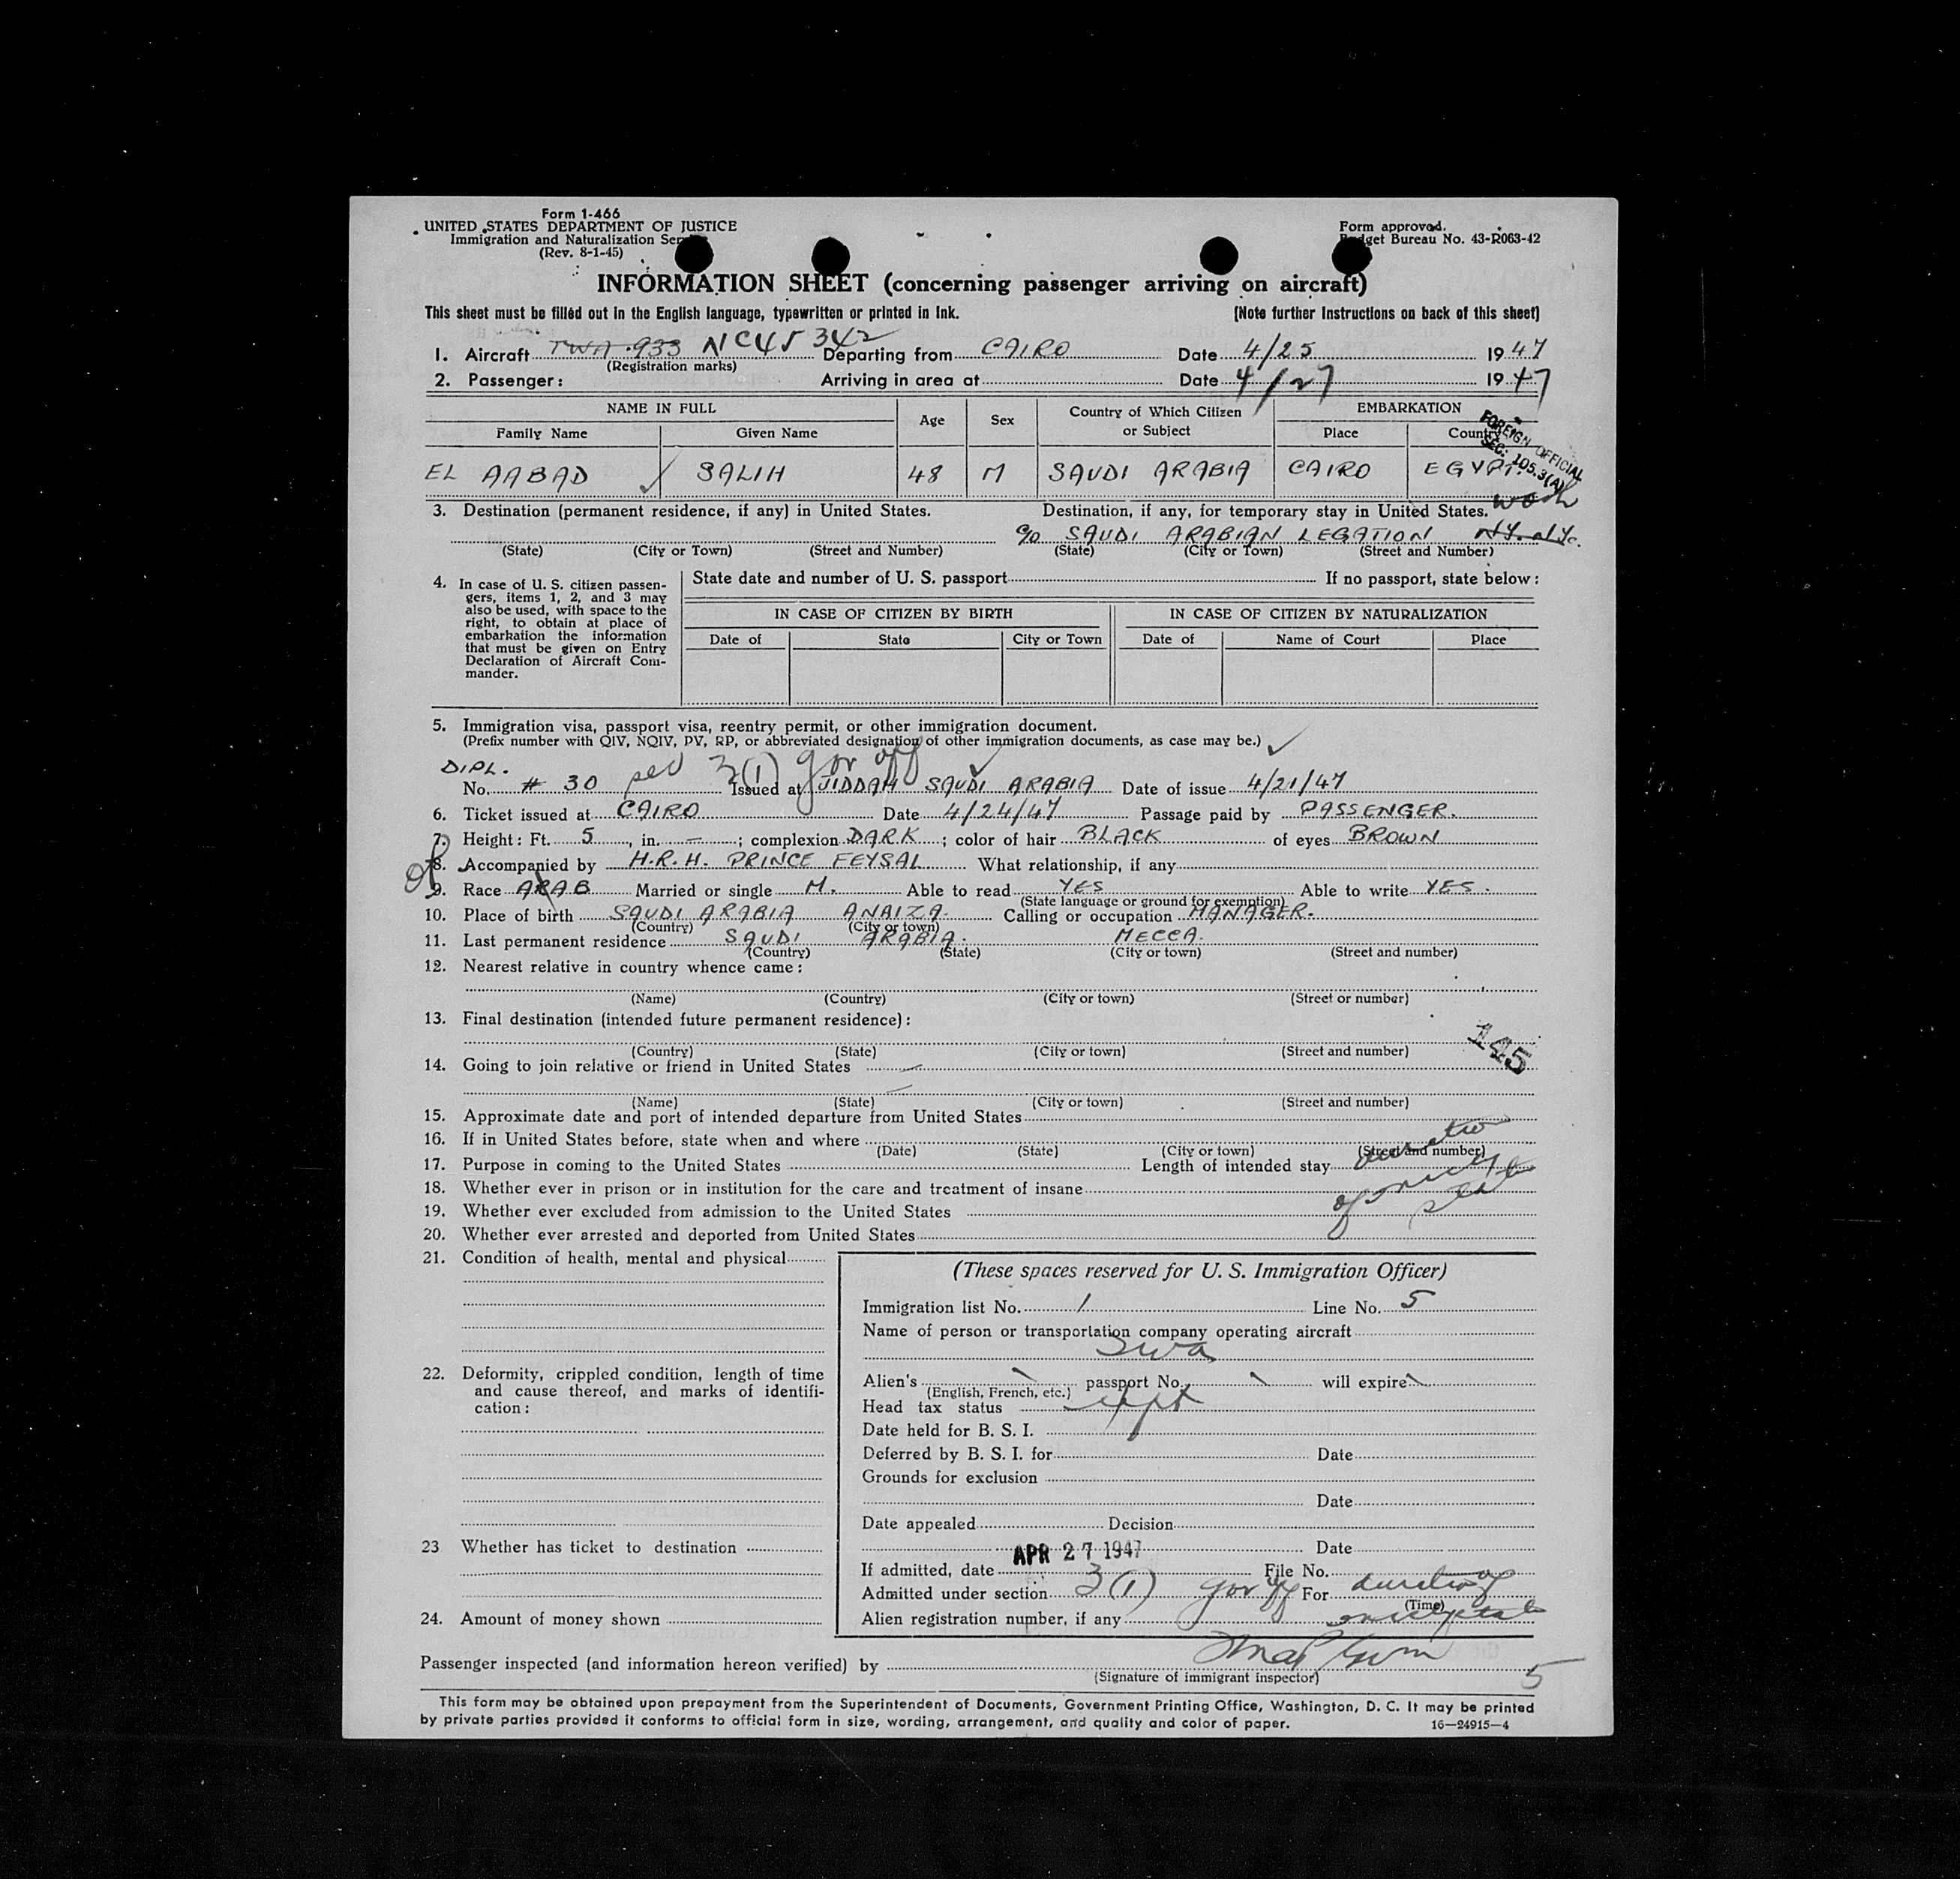 Form 1-466
UNITED STATES DEPARTMENT OF JUSTICE
Immigration and Naturalization
(Rev. 8-1-45)
Form approved.
Bureau No. 43-R063-42
INFORMATION SHEET (concerning passenger arriving on aircraft)
This sheet must be filled out in the English language, typewritten or printed in ink.
(Note further Instructions on back of this sheet)
1. Aircraft TWA 933 NC45342 Departing from CAIRO Date 4/25 1947
(Registration marks)
2. Passenger: Arriving in area at Date 4/27 1947
NAME IN FULL Age Sex Country of Which Citizen or Subject EMBARKATION
Family Name Given Name Place Country
FOREIGN OFFICIAL
SEC. 105.3(A)
EL AABAD SALIH 48 M SAUDI ARABIA CAIRO EGYPT.
Wash
3. Destination (permanent residence, if any) in United States. Destination, if any, for temporary stay in United States.
c/o SAUDI ARABIAN LEGATION
(State) (City or Town) (Street and Number) (State) (City or Town) (Street and Number)
4. In case of U. S. citizen passen-
gers, items 1, 2, and 3 may
also be used, with space to the
right, to obtain at place of
embarkation the information
that must be given on Entry
Declaration of Aircraft Com-
mander.
State date and number of U. S. passport If no passport, state below:
IN CASE OF CITIZEN BY BIRTH IN CASE OF CITIZEN BY NATURALIZATION
Date of State City or Town Date of Name of Court Place
5. Immigration visa, passport visa, reentry permit, or other immigration document.
(Prefix number with QIV, NQIV, PV, RP, or abbreviated designation of other immigration documents, as case may be.)
DIPL. 3(1) gov off
No. # 30 Issued at JIDDAH SAUDI ARABIA Date of issue 4/21/47
6. Ticket issued at CAIRO Date 4/24/47 Passage paid by PASSENGER.
7. Height: Ft. 5, in. —; complexion DARK; color of hair BLACK of eyes BROWN
8. Accompanied by H.R.H. PRINCE FEYSAL What relationship, if any
9. Race ARAB Married or single M. Able to read YES Able to write YES.
(State language or ground for exemption)
10. Place of birth SAUDI ARABIA ANAIZA. Calling or occupation MANAGER.
(Country) (City or town)
11. Last permanent residence SAUDI ARABIA. MECCA.
(Country) (State) (City or town) (Street and number)
12. Nearest relative in country whence came:
(Name) (Country) (City or town) (Street or number)
13. Final destination (intended future permanent residence):
145
(Country) (State) (City or town) (Street and number)
14. Going to join relative or friend in United States
(Name) (State) (City or town) (Street and number)
15. Approximate date and port of intended departure from United States
16. If in United States before, state when and where
(Date) (State) (City or town) (Street and number)
17. Purpose in coming to the United States Length of intended stay duration
18. Whether ever in prison or in institution for the care and treatment of insane
of
19. Whether ever excluded from admission to the United States
20. Whether ever arrested and deported from United States
21. Condition of health, mental and physical
22. Deformity, crippled condition, length of time
and cause thereof, and marks of identifi-
cation:
23 Whether has ticket to destination
24. Amount of money shown
(These spaces reserved for U. S. Immigration Officer)
Immigration list No. 1 Line No. 5
Name of person or transportation company operating aircraft
Twa
Alien's passport No. will expire
(English, French, etc.)
Head tax status
Date held for B. S. I.
Deferred by B. S. I. for Date
Grounds for exclusion
Date
Date appealed Decision
Date
If admitted, date APR 27 1947 File No.
Admitted under section 3(1) gov off For duration of
(Time)
Alien registration number, if any
Passenger inspected (and information hereon verified) by
(Signature of immigrant inspector)
5
This form may be obtained upon prepayment from the Superintendent of Documents, Government Printing Office, Washington, D. C. It may be printed
by private parties provided it conforms to official form in size, wording, arrangement, and quality and color of paper. 16—24915-4